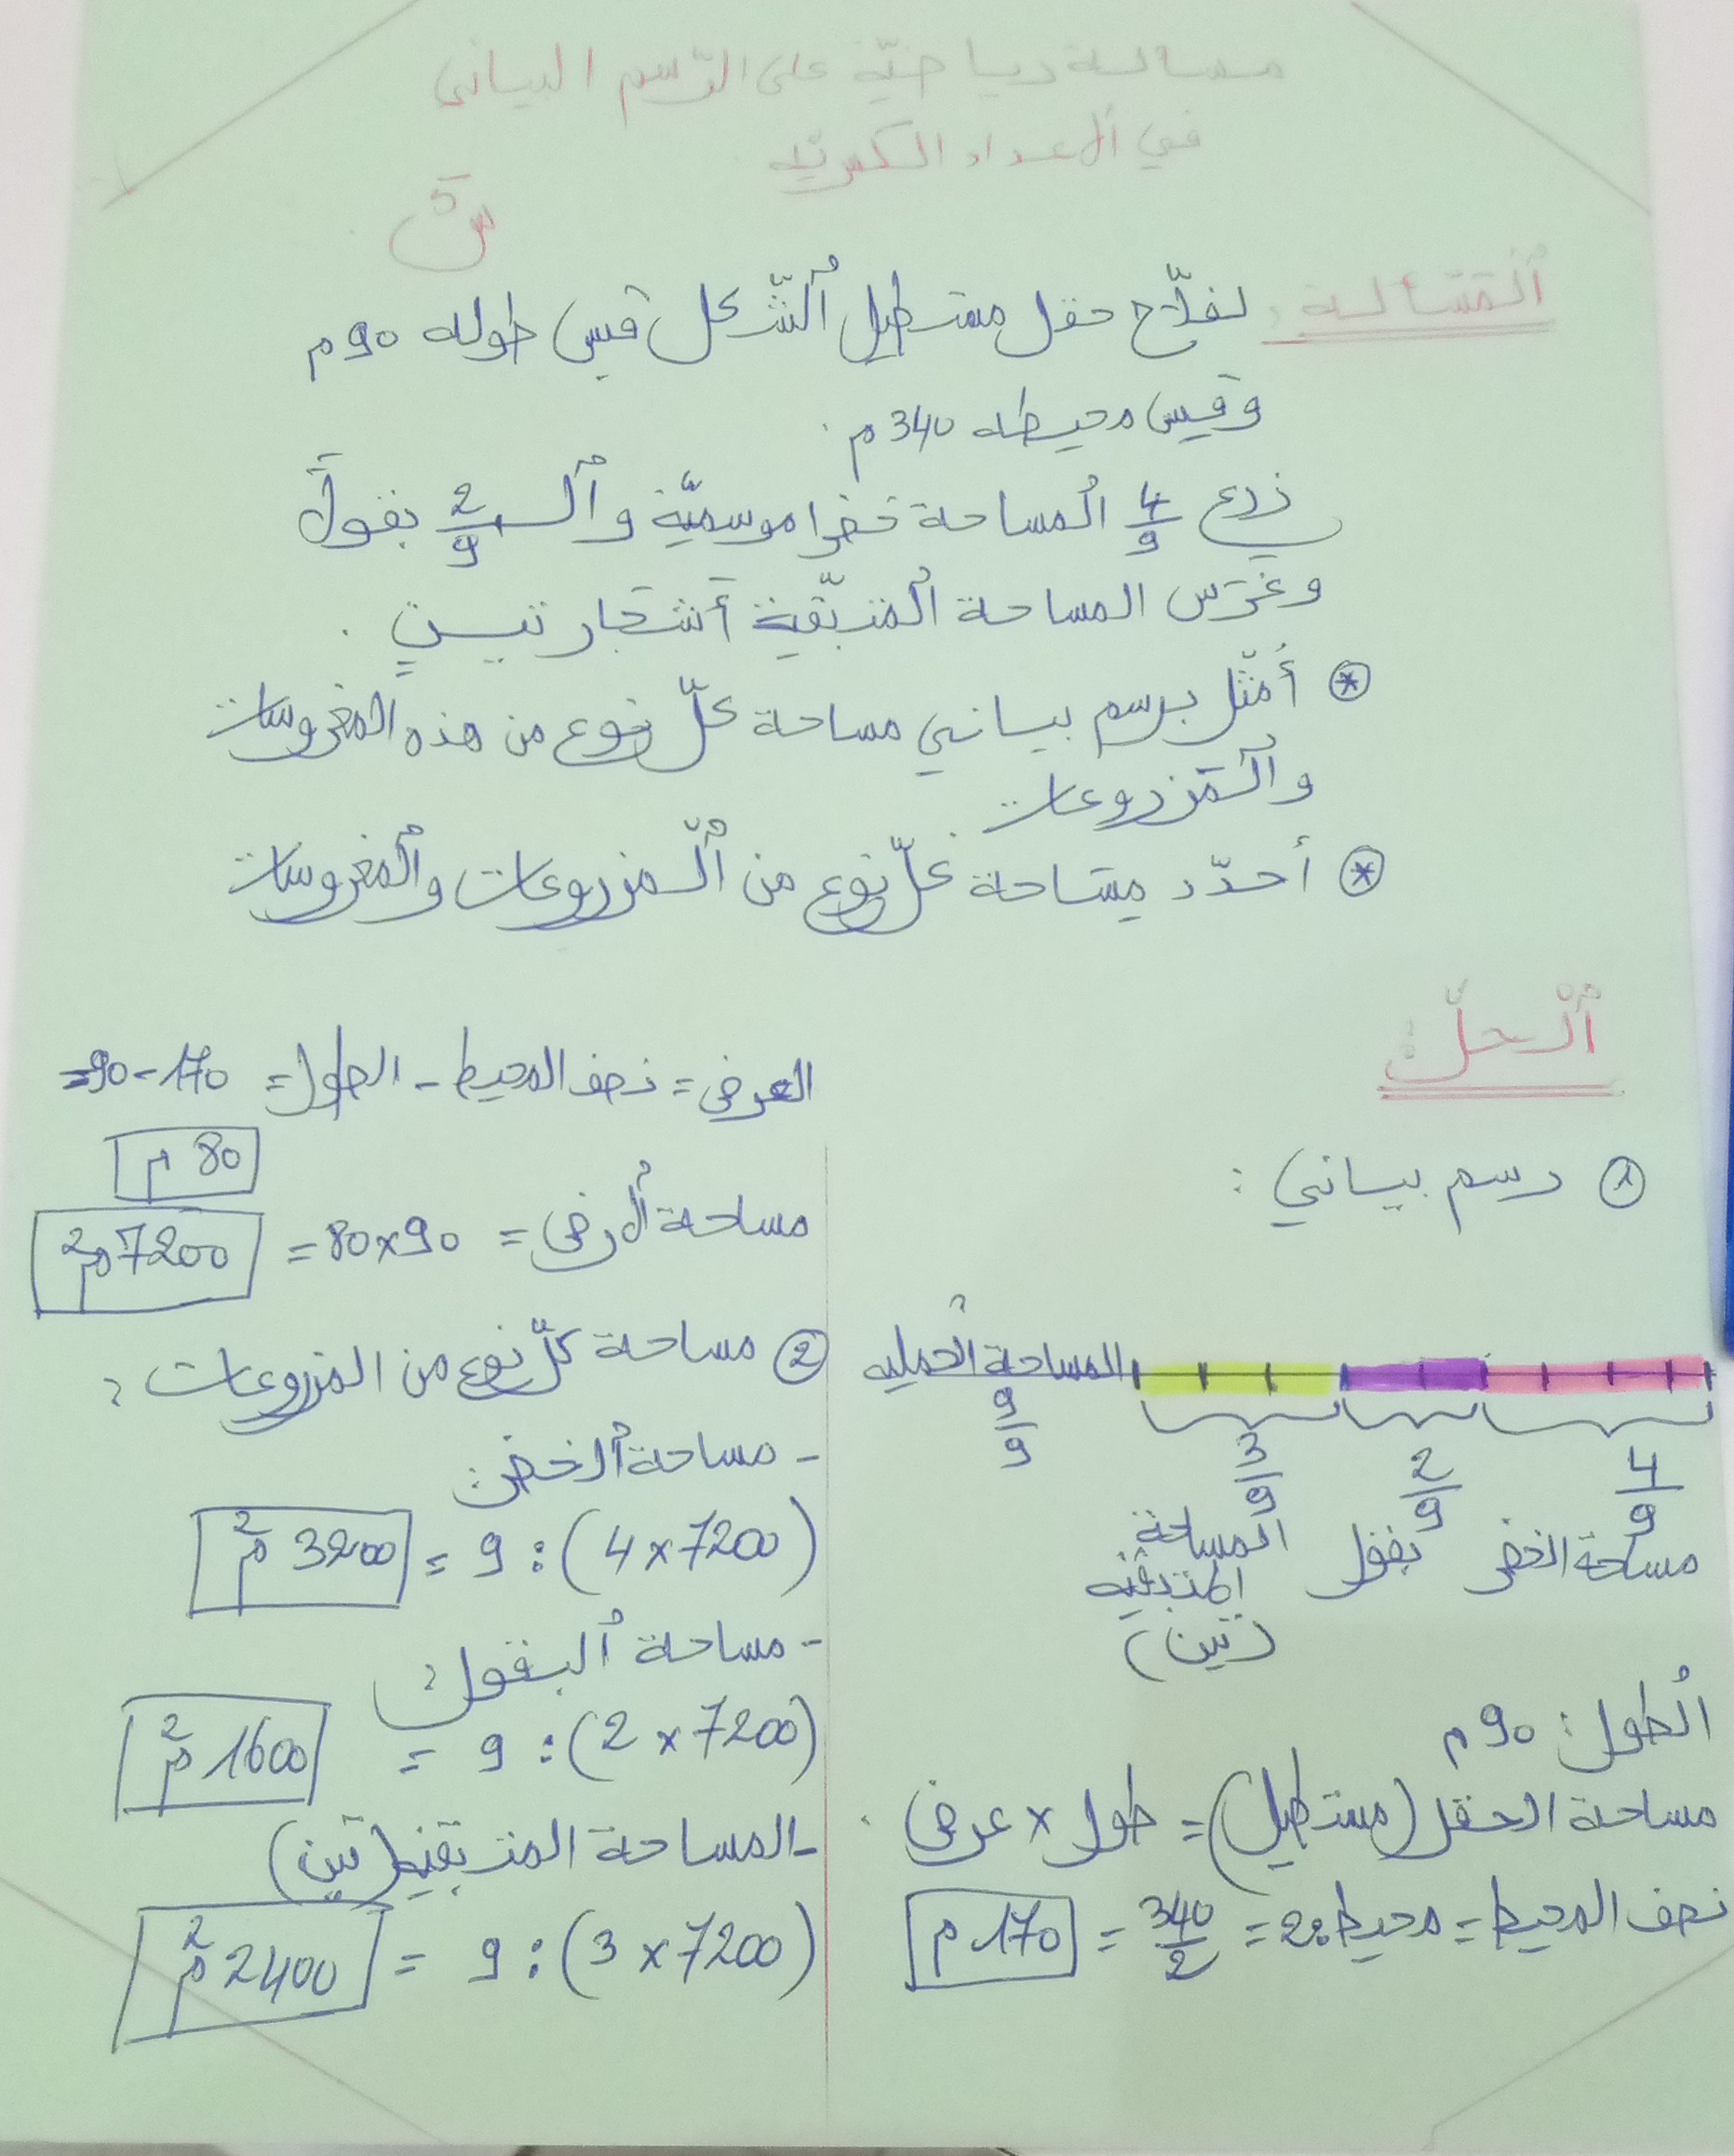 مسألة رياضيّة على الرّسم البياني
في الأعداد الكسريّة
س5
المَسْألة: لفلّاح حقل مستطيل الشّكل قيس طوله 90م
وقيس محيطه 340م.
زرع 4/9 المساحة خضرا موسميّة والـ 2/9 بقولًا
وغَرَس المساحة المُتبقّية أشجار تينٍ.
* أمَثّل برسم بياني مساحة كلّ نوع من هذه المغروسات
والمَزروعات.
* أحدّد مِسَاحة كلّ نوع من المزروعات والمغروسات
الحلّ:
① رسم بياني:
المساحة الجملية 9/9
4/9 مساحة الخضر
2/9 بقول
3/9 المساحة
المتبقية
(تين)
الطول: 90م
مساحة الحقل (مستطيل) = طول × عرض
نصف المحيط = محيط:2 = 340/2 = 170م
العرض = نصف المحيط - الطول = 170-90=
80م
مساحة الأرض = 80×90 = 7200م²
② مساحة كلّ نوع من المزروعات:
- مساحة الخضر:
(4×7200) : 9 = 3200م²
- مساحة البقول:
(2×7200) : 9 = 1600م²
- المساحة المتبقية (تين)
(3×7200) : 9 = 2400م²